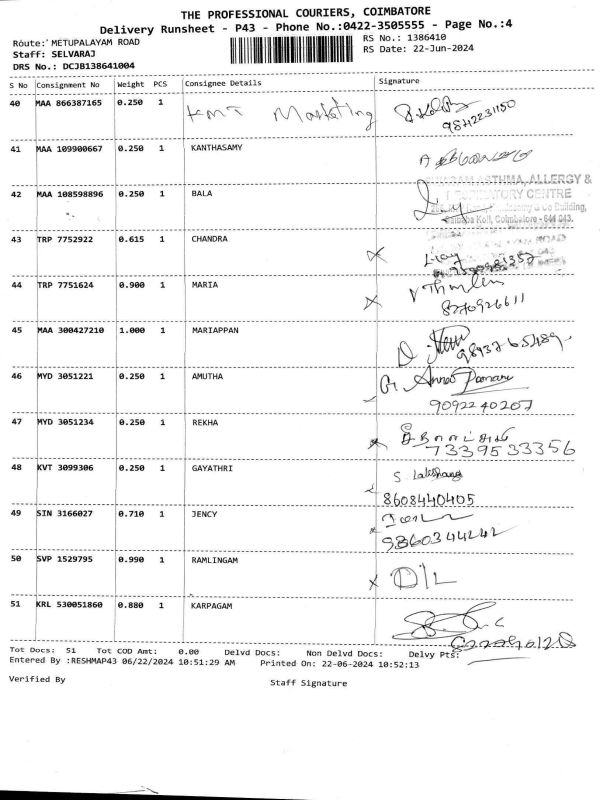 THE PROFESSIONAL COURIERS, COIMBATORE
Delivery Runsheet - P43 - Phone No.:0422-3505555 - Page No.:4
Route: METUPALAYAM ROAD
RS No.: 1386410
Staff: SELVARAJ
RS Date: 22-Jun-2024
DRS No.: DCJB138641004
S No Consignment No Weight PCS Consignee Details Signature
40 MAA 866387165 0.250 1 KMT Marketing
9842231150
41 MAA 109900667 0.250 1 KANTHASAMY
ASTHMA, ALLERGY &
CENTRE
42 MAA 108598896 0.250 1 BALA
& Co Building,
Koil, Coimbatore - 641 043.
43 TRP 7752922 0.615 1 CHANDRA
ROAD
44 TRP 7751624 0.900 1 MARIA
8270926611
45 MAA 300427210 1.000 1 MARIAPPAN
46 MYD 3051221 0.250 1 AMUTHA
9092240207
47 MYD 3051234 0.250 1 REKHA
7339533356
48 KVT 3099306 0.250 1 GAYATHRI
8608440405
49 SIN 3166027 0.710 1 JENCY
9860344242
50 SVP 1529795 0.990 1 RAMLINGAM
51 KRL 530051860 0.880 1 KARPAGAM
Tot Docs: 51 Tot COD Amt: 0.00 Delvd Docs: Non Delvd Docs: Delvy Pts:
Entered By :RESHMAP43 06/22/2024 10:51:29 AM Printed On: 22-06-2024 10:52:13
Verified By Staff Signature